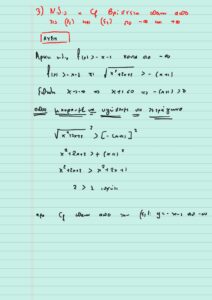 3) Νδο η Cf βρίσκεται πάνω από
τις (ε₁) και (ε₂) στο -∞ και +∞
ΛΥΣΗ
Αρκεί νδο f(x) > -x-1 κοντά στο -∞
f(x) > -x-1 ⇔ √x²+2x+2 > -(x+1)
x → -∞ ⇒ x+1 < 0 ⇒ -(x+1) > 0
άρα μπορούμε να υψώσουμε στο τετράγωνο
√x²+2x+2² > [-(x+1)]²
x²+2x+2 > +(x+1)²
x²+2x+2 > x²+2x+1
2 > 1 ισχύει
άρα Cf πάνω από την (ε₁): y=-x-1 στο -∞